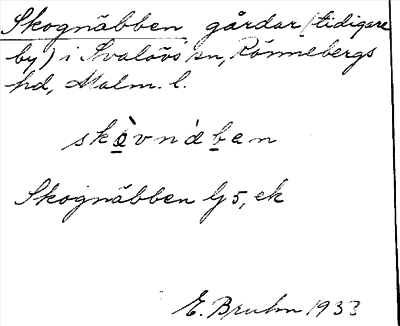 Skognäbben gårdar (tidigare
by) i Svalövs sn, Rönnebergs
hd, Malm. l.
skò̱vnàḇen
Skognäbben Gj 5, ek
E. Bruhn 1933